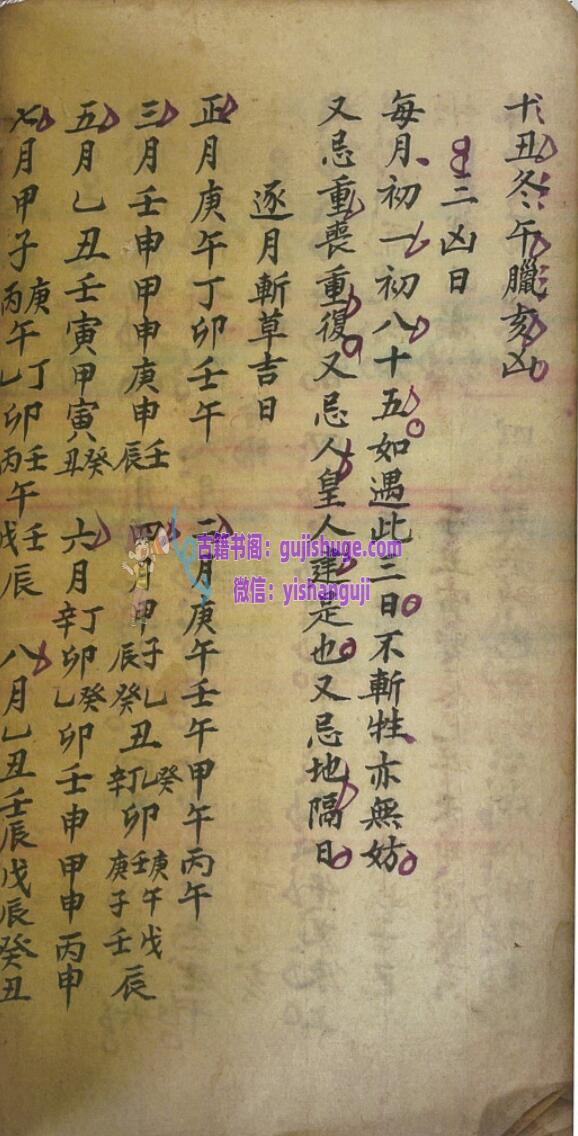 十丑冬午臘亥凶
三凶日
每月初一初八十五如遇此三日不斬牲亦無妨
又忌重喪重復又忌人皇人建是也又忌地隔日
逐月斬草吉日
正月庚午丁卯壬午 二月庚午壬午甲午丙午
三月壬申甲申庚申壬辰 四月甲子乙丑
五月乙丑壬寅甲寅癸丑 六月丁卯辛卯癸卯乙卯壬申甲申丙申
七月甲子庚午丙午丁卯乙卯壬午丙午壬辰戊辰 八月乙丑壬辰戊辰癸丑
古籍书阁：gujishuge.com
微信：yishanguji